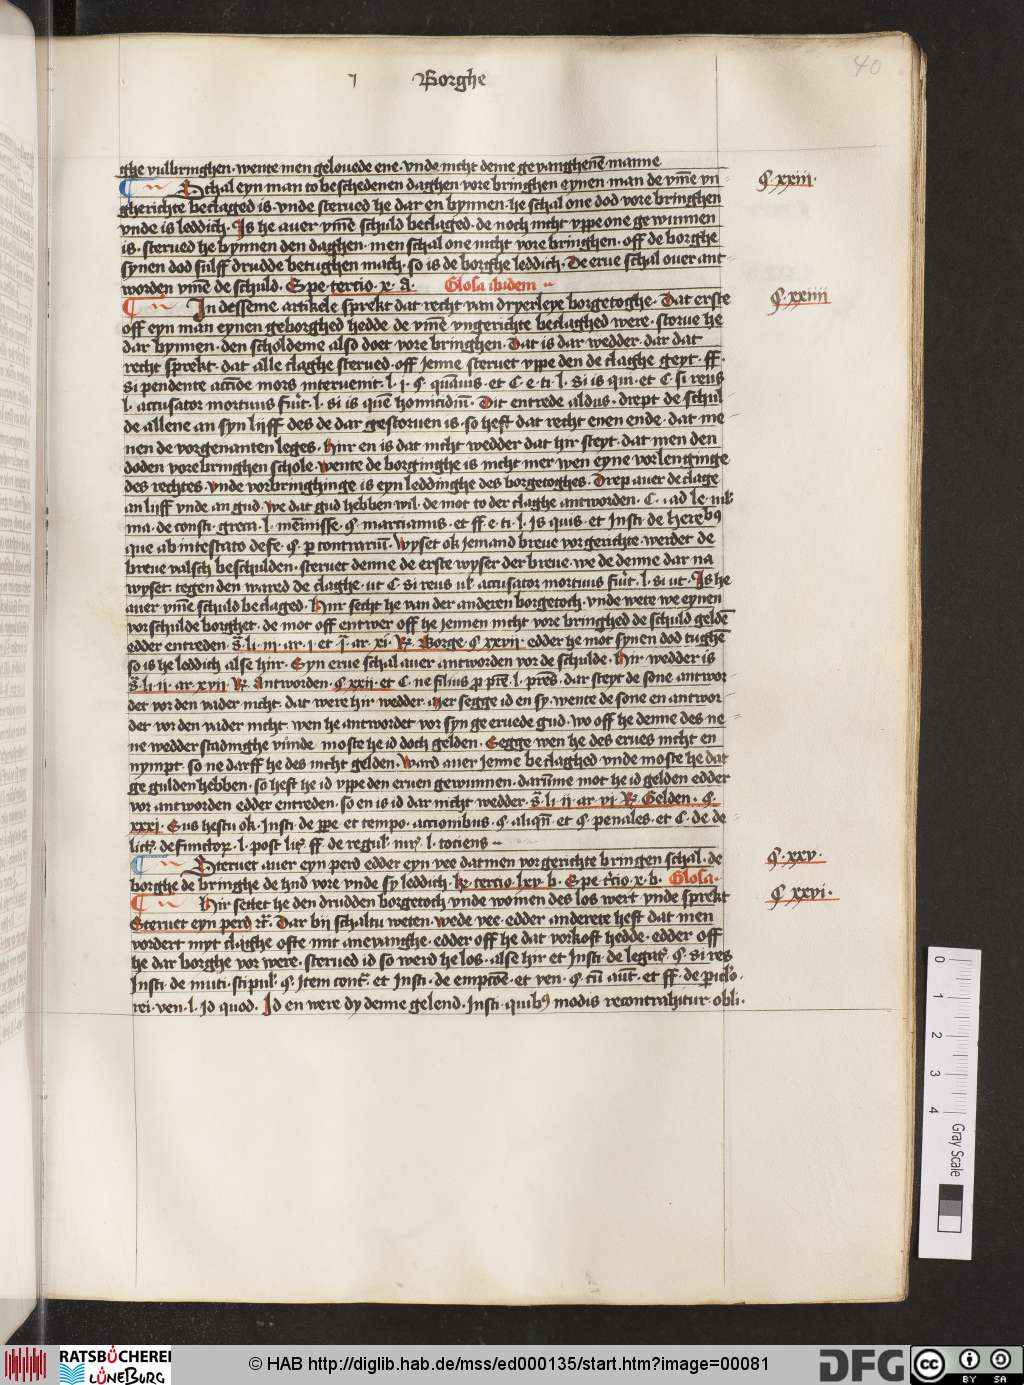 40
j Borghe
ghe vulbringhen · wente men gelouede ene · vnde nicht deme gevanghenē manne
Schal eyn man to beschedenen daghen vore bringhen eynen man de vm̄e vn
§ xxiii ·
gherichte beclaged is · vnde sterued he dar en bynnen · he schal one dod vore bringhen
vnde is leddich · Is he auer vm̄e schuld beclaged · de noch nicht vppe one gewunnen
is · sterued he bynnen den daghen · men schal one nicht vore bringhen · off de borghe
synen dod sulff drudde betughen mach · so is de borghe leddich · De erue schal ouer ant
worden vm̄e de schuld · Spe tercio · x · a · Glosa ibidem
In desseme artikele sprekt dat recht van dryerleye borgetoghe · Dat erste
§ xxiiii
off eyn man eynen geborghed hedde de vm̄e vngerichte beclaghed were · storue he
dar bynnen · den scholdeme also doet vore bringhen · Dat is dar wedder · dar dat
recht sprekt · dat alle claghe sterued · off jenne steruet vppe den de claghe geyt · ff ·
si pendente · mors interuenit · l · j · § · et C · e · ti · l · si is qui · et C · si reus
l · accusator mortuus fu͛it · l · si is quē homicidiū · Dit entrede aldus · drept de schul
de allene an syn lijff des de dar gestoruen is · so heft dat recht enen ende · dat me
nen de vorgenanten leges · Hir en is dat nicht wedder dat hir steyt · dat men den
doden vore bringhen schole · wente de borginghe is nicht mer wen eyne vorlenginge
des rechtes · vnde vorbringhinge is eyn leddinghe des borgetoghes · Drep auer de clage
an lijff vnde an gud · we dat gud hebben wil · de mot to der claghe antworden · C · ad le · iul͛
ma · de consti · greca · l · · § · marcianus · et ff · e · ti · l · Is quis · et Insti · de hereb⁹
que ab intestato defe · § · p contrariū · Wyset ok jemand breue vor gerichte · werdet de
breue valsch beschulden · steruet denne de erste wyser der breue · we de denne dar na
wyset · tegen den wared de claghe · ut C · si reus ul͛ · accusator mortuus fu͛it · l · si ut · Is he
auer vm̄e schuld beclaged · Hir secht he van der anderen borgetoch · vnde wete we eynen
vor schulde borghet · de mot off entwer off he jennen nicht vore bringhed de schuld geldē
edder entreden · s̄ · li · iii · ar · i · et · ar · xi · R͛ · Borge · § xxvii · edder he mot synen dod tughē
so is he leddich alse hir · Eyn erue schal auer antworden vor de schulde · Hir wedder is
s̄ · li · ii · ar · xvii · R͛ · Antworden · § xxii · et C · ne filius p pr̄e · l · · dar steyt de sone antwor
det vor den vader nicht · dat were hir wedder · Hier segge id en sy · wente de sone en antwor
det vor den vader nicht · wen he antwordet vor syn geeruede gud · wo off he denne des ne
ne wedder stadinghe moste he id doch gelden · Segge wen he des erues nicht en
nympt · so ne darff he des nicht gelden · Ward auer jenne beclaghed vnde moste he dat
ge gulden hebben · so heft he id vppe den eruen gewunnen · darūme mot he id gelden edder
vor antworden edder entreden · so en is id dar nicht wedder · s̄ · li · ii · ar · vi · R͛ · Gelden · § ·
xxxi · Sus hestu ok · Insti · de ppe · et tempo · accionibus · § · aliqn̄ · et § · penales · et C · de de
lict͛ · defunctor͛ · l · post · ff · de regul͛ · iur͛ · l · tociens
Steruet auer eyn perd edder eyn vee dat men vor gerichte bringen schal · de
§ · xxv ·
borghe de bringhe de hud vore vnde sy leddich · R͛ · tercio · lxv · b · Spe t͛cio · x · b · Glosa ·
Hir settet he den drudden borgetoch vnde wo men des los wert · vnde sprekt
§ xxvi ·
Steruet eyn perd rc͛ · Dar bij schaltu weten · we de vee · edder anderete heft dat men
vordert myt claghe ofte mit anevanghe · edder off he dat vorkoft hedde · edder off
he dar borghe vor were · sterued id so werd he los · alse hir et Insti · de legat͛ · § · si res
Insti · de muti · stipul͛ · § · Item cont͛ · et Insti · de empcōe · et ven · § · cū aūt · et ff · de p͛iclo ·
rei · ven · l · Id quod · Id en were dy denne gelend · Insti · quib⁹ modis re contrahitur · obli ·
0 1 2 3 4
Gray Scale
RATSBÜCHEREI LÜNEBURG
© HAB http://diglib.hab.de/mss/ed000135/start.htm?image=00081
DFG
cc BY SA